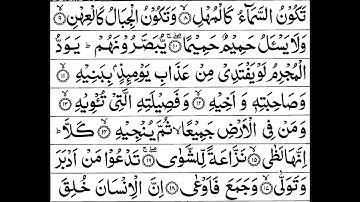 تَكُوْنُ السَّمَآءُ كَالْمُهْلِ ۙ﴿۸﴾ وَتَكُوْنُ الْجِبَالُ كَالْعِهْنِ ۙ﴿۹﴾
وَلَا يَسْـَٔلُ حَمِيْمٌ حَمِيْمًا ۚۖ﴿۱۰﴾ يُّبَصَّرُوْنَهُمْ ؕ يَوَدُّ
الْمُجْرِمُ لَوْ يَفْتَدِىْ مِنْ عَذَابِ يَوْمِئِذٍۢ بِبَنِيْهِ ۙ﴿۱۱﴾
وَصَاحِبَتِهٖ وَاَخِيْهِ ۙ﴿۱۲﴾ وَفَصِيْلَتِهِ الَّتِىْ تُـْٔوِيْهِ ۙ﴿۱۳﴾
وَمَنْ فِى الْاَرْضِ جَمِيْعًا ۙ ثُمَّ يُنْجِيْهِ ۙ﴿۱۴﴾ كَلَّا ؕ
اِنَّهَا لَظٰى ۙ﴿۱۵﴾ نَزَّاعَةً لِّلشَّوٰى ۚۖ﴿۱۶﴾ تَدْعُوْا مَنْ اَدْبَرَ
وَتَوَلّٰى ۙ﴿۱۷﴾ وَجَمَعَ فَاَوْعٰى ﴿۱۸﴾ اِنَّ الْاِنْسَانَ خُلِقَ